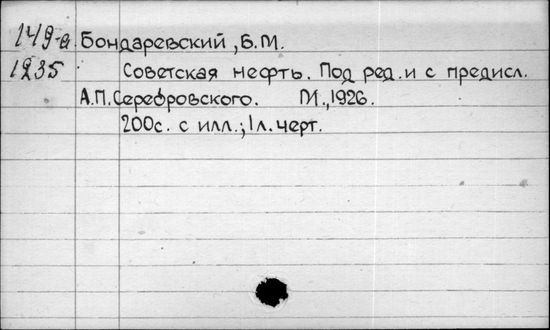 149-а Бондаревский, Б.М.
1235 Советская нефть. Под ред. и с предисл.
А.П.Серебровского. М.,1926.
200с. с илл.; 1л. черт.